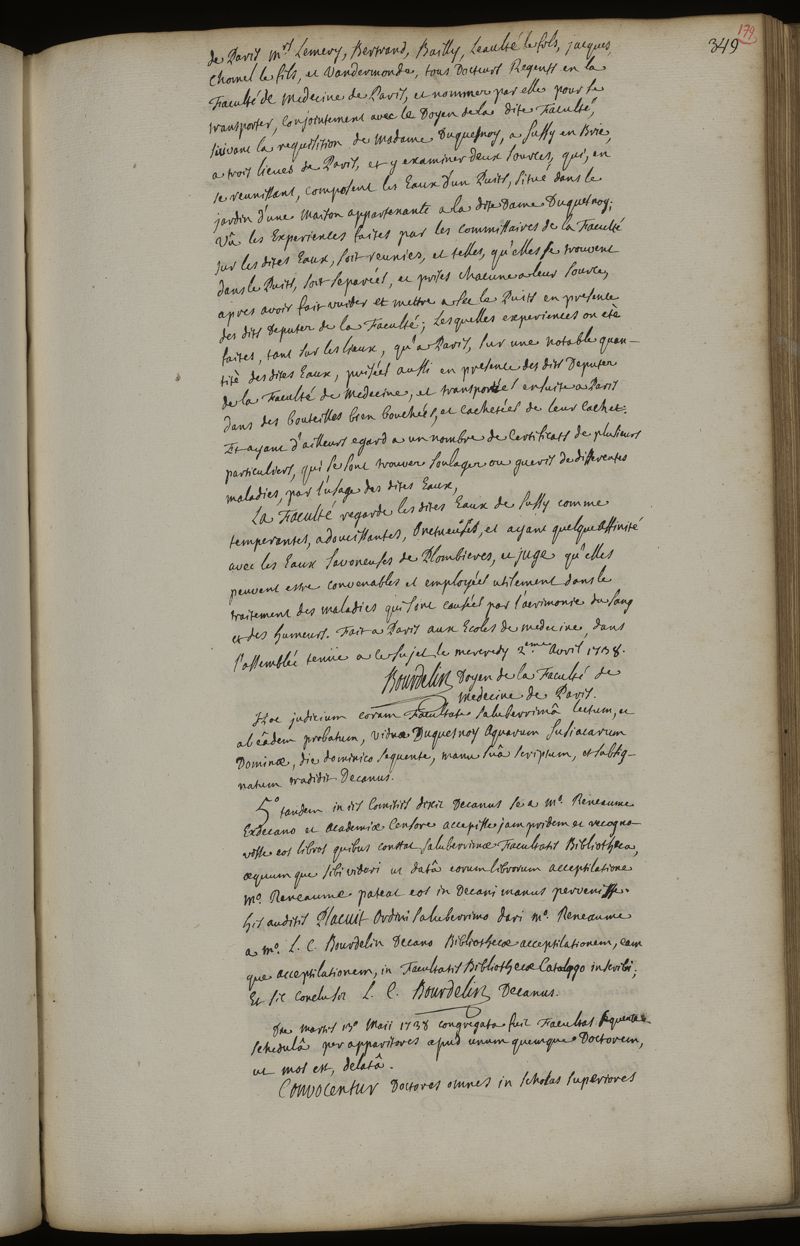 349
179
de Paris mrs Lemery, Bertrand, Bailly, Leaulté le fils, jacques
Chomel le fils, et Vandermonde, tous Docteurs Regents en la
Faculté de Medecine de Paris, et nommez par elle pour se
transporter, conjointement avec le Doyen de la dite Faculté,
suivant la requisition de Madame Duquesnoy, a Sussy en Brie,
a trois lieues de Paris, et y examiner deux sources, qui, en
se reunissant, composent les Eaux d'un Puits, situé dans le
jardin d'une Maison appartenante a la dite Dame Duquesnoy;
Vû les Experiences faites par les Commissaires de la Faculté
sur les dites Eaux, soit reunies, et telles, qu'elles se trouvent
dans le Puits, soit separées, et prises chacune a leur source,
apres avoir fait vuider et mettre a sec le Puits en presence
des dits Deputez de la Faculté; Lesquelles experiences on eté
faites, tant sur les lieux, qu'a Paris, sur une notable quan-
tité des dites Eaux, puisées aussi en presence des dits Deputez
de la Faculté de Medecine, et transportées ensuite a Paris
dans des bouteilles bien bouchées, et cachetées de leur cachet.
Et ayant d'ailleurs egard a un nombre de Certificats de plusieurs
particuliers, qui se sont trouvez soulagez ou gueris de differentes
maladies, par l'usage des dites Eaux,
La Faculté regarde les dites Eaux de Sussy comme
temperantes, adoucissantes, Onctueuses, et ayant quelque affinité
avec les Eaux savoneuses de Plombieres, et juge qu'elles
peuvent estre convenables et employées utilement dans le
traitement des maladies qui sont causées par l'acrimonie du sang
et des humeurs. Fait a Paris aux Ecoles de medecine, dans
l'assemblée tenüe a ce sujet le mercredy 2eme Avril 1738.
Bourdelin Doyen de la Faculté de
medecine de Paris.
Hoc judicium coram Facultate saluberrimâ lectum, et
ab eâdem probatum, viduæ Duquesnoy Aquarum Susiacarum
Dominæ, die dominico sequente, manu suâ scriptum, et subsig-
natum tradidit Decanus.
5o tandem in iis Comitiis dixit Decanus se a Mo. Reneaume
Exdecano et Academiæ Censore accepisse jampridem et recogno-
visse eos libros quibus constat saluberrimæ Facultatis Bibliotheca,
æquumque sibi videri ut datâ eorum librorum acceptilatione
Mo. Reneaume pateat eos in Decani manus pervenisse.
his auditis Placuit Ordini saluberrimo dari mo. Reneaume
a mo. L. C. Bourdelin Decano Bibliothecæ acceptilationem, eam
que acceptilationem, in Facultatis Bibliothecæ Catalogo inscribi;
Et sic conclusit L. C. Bourdelin Decanus.
Die martis 13o Maii 1738 congregata fuit Facultas sequente
schedulâ per apparitores apud unumquemque Doctorem,
ut mos est, delatâ.
Convocentur Doctores omnes in scholas superiores